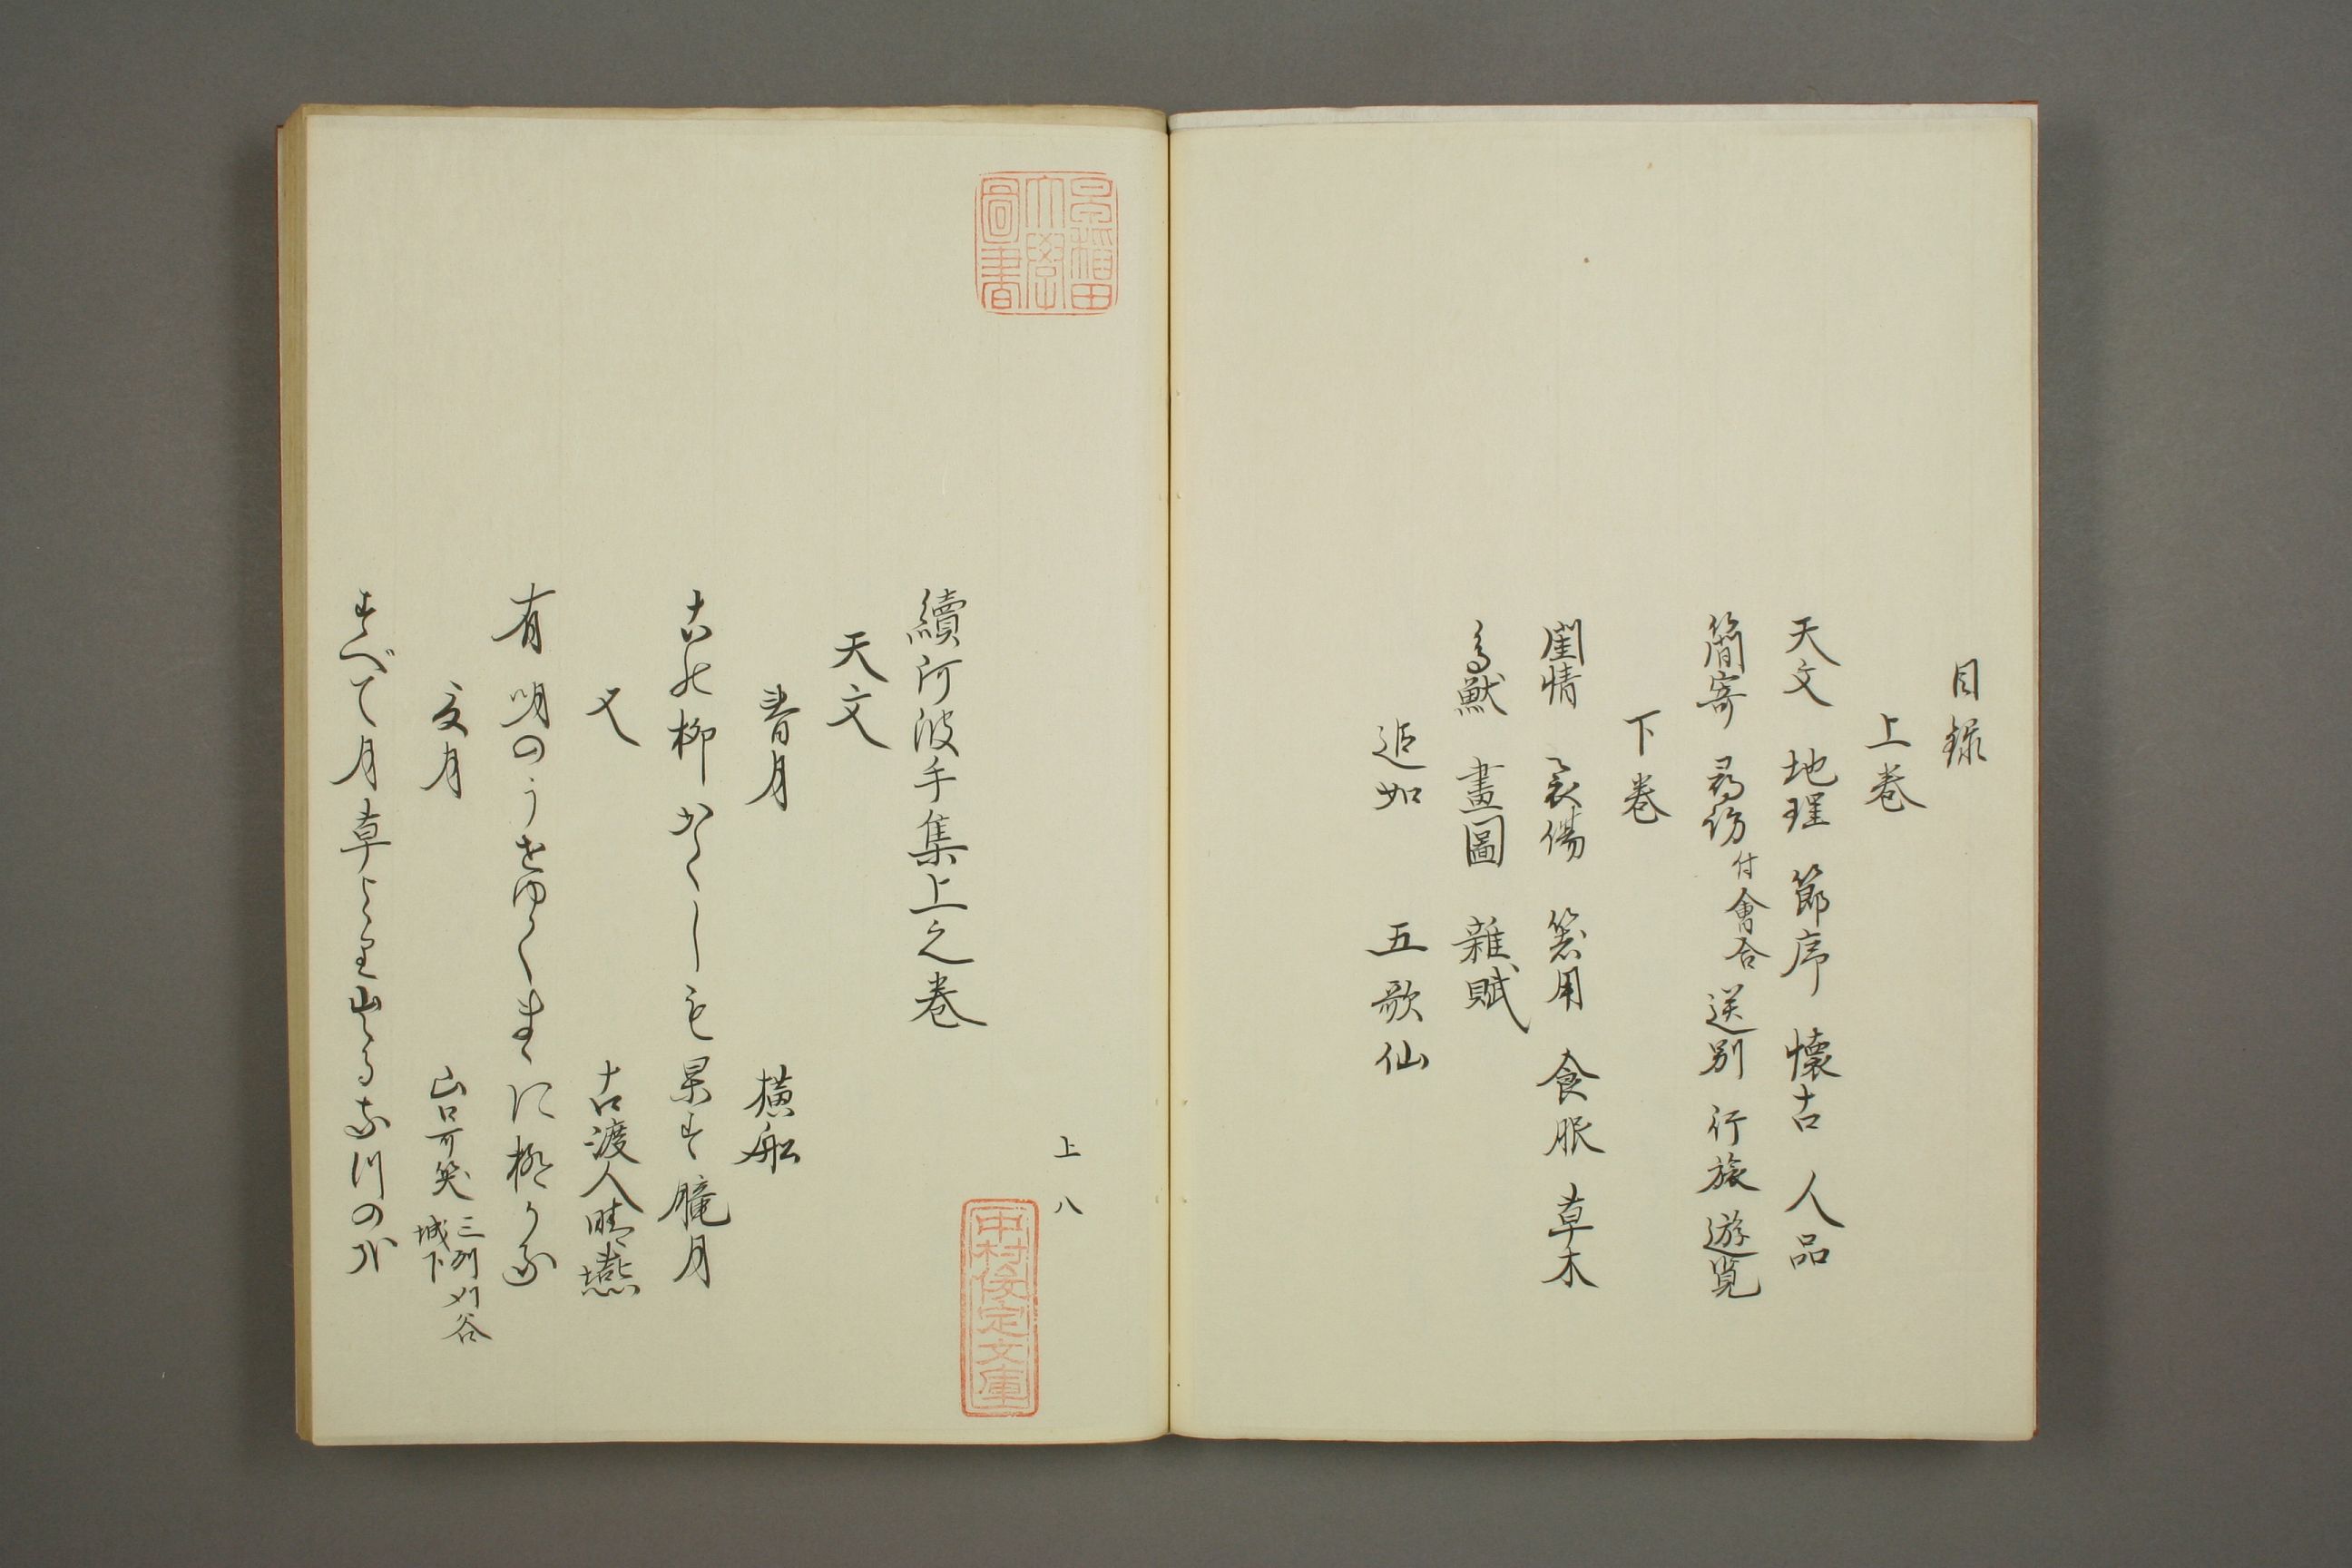 目録
上巻
天文 地理 節序 懐古 人品
簡寄 尋訪 付會合 送別 行旅 遊覧
下巻
閨情 哀傷 器用 食服 草木
鳥獣 畫圖 雜賦
追加 五歌仙
早稲田大學圖書
上八
中村俊定文庫
續阿波手集上之巻
天文
春月 横船
古の柳かくしも果す朧月
又 古渡人晴
有明のうせゆくまゝに極るかな
夏月 山口可笑 三列刈谷城下
すべて月草より出る